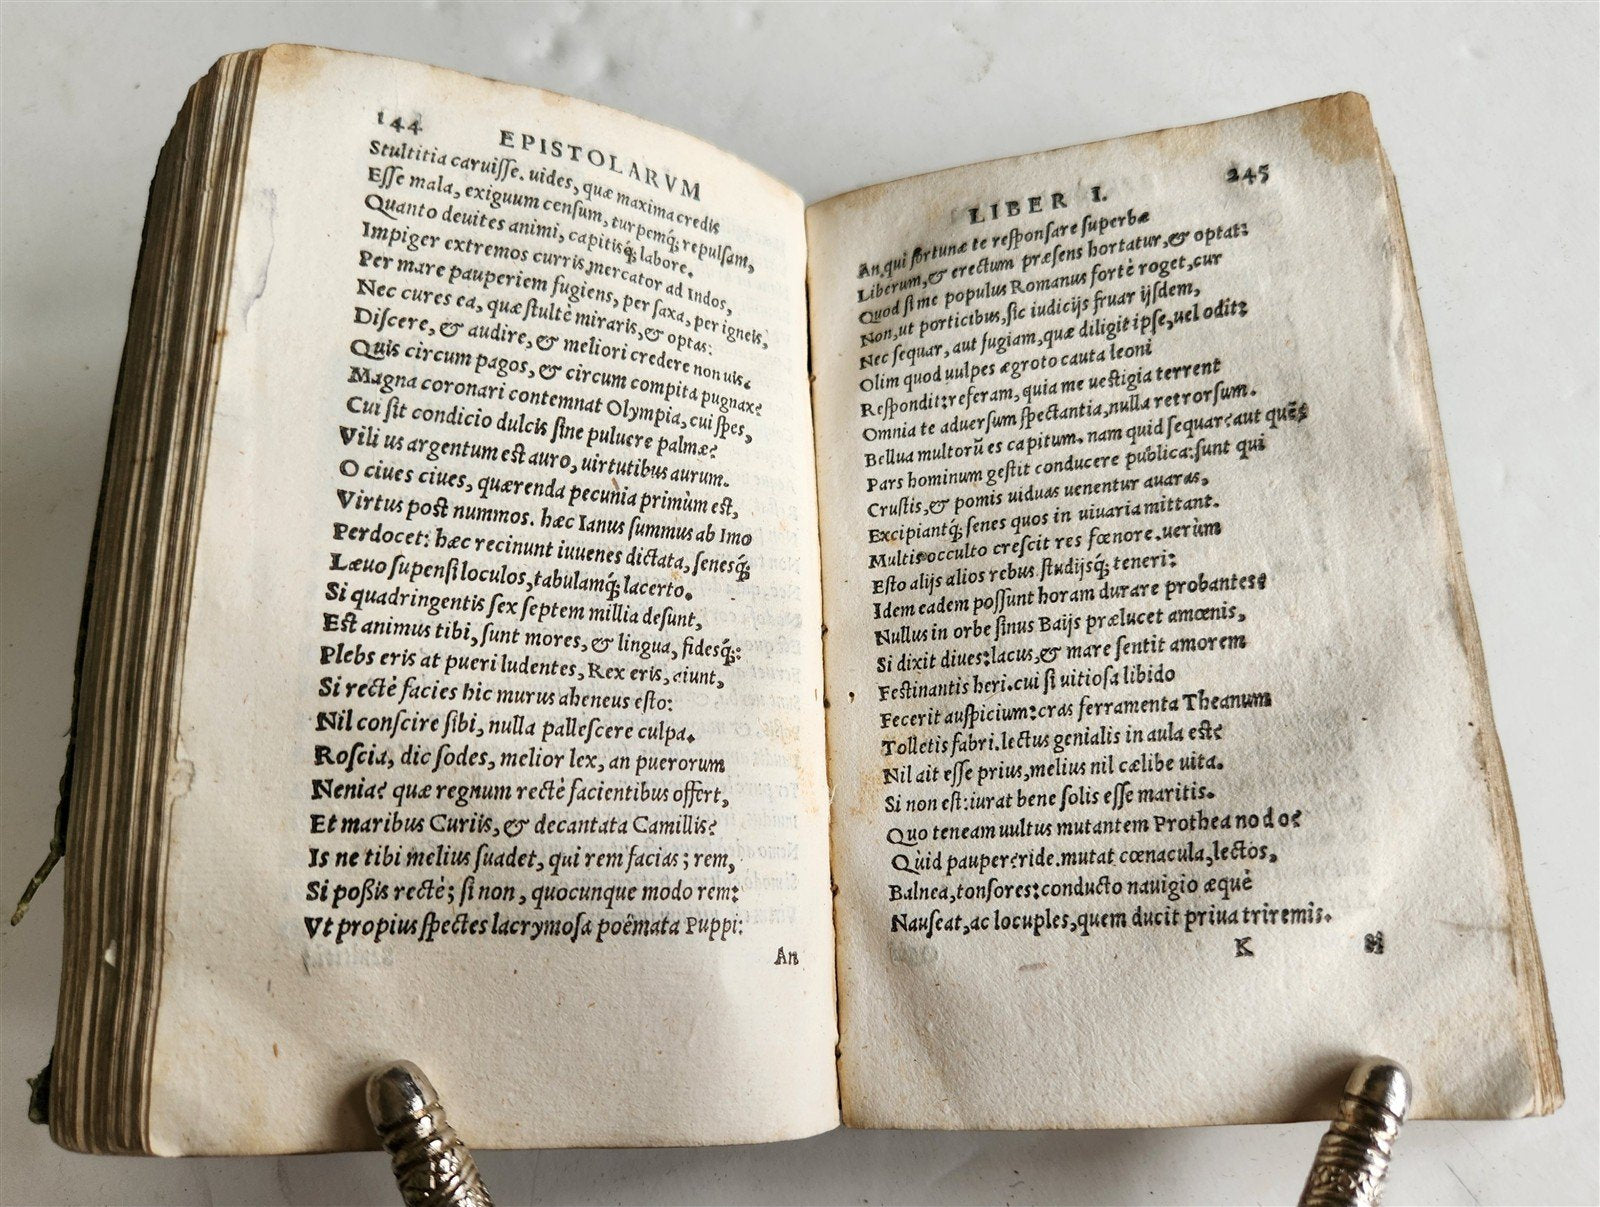 144
EPISTOLARVM
Stultitia caruiſſe. uides, quæ maxima credis
Eſſe mala, exiguum cenſum, turpemq́; repulſam,
Quanto deuites animi, capitisq́; labore.
Impiger extremos curris mercator ad Indos,
Per mare pauperiem fugiens, per ſaxa, per igneis,
Nec cures ea, quæ ſtultè miraris, & optas:
Diſcere, & audire, & meliori credere non uis.
Quis circum pagos, & circum compita pugnax?
Magna coronari contemnat Olympia, cui ſpes,
Cui ſit condicio dulcis ſine puluere palmæ?
Vili us argentum eſt auro, uirtutibus aurum.
O ciues ciues, quærenda pecunia primùm eſt,
Virtus poſt nummos. hæc Ianus ſummus ab Imo
Perdocet: hæc recinunt iuuenes dictata, ſenesq́;
Læuo ſupenſi loculos, tabulamq́; lacerto.
Si quadringentis ſex ſeptem millia deſunt,
Eſt animus tibi, ſunt mores, & lingua, fidesq́;:
Plebs eris at pueri ludentes, Rex eris, aiunt,
Si rectè facies hic murus aheneus eſto:
Nil conſcire ſibi, nulla palleſcere culpa.
Roſcia, dic ſodes, melior lex, an puerorum
Nenia? quæ regnum rectè facientibus offert,
Et maribus Curiis, & decantata Camillis?
Is ne tibi melius ſuadet, qui rem facias; rem,
Si poßis rectè; ſi non, quocunque modo rem:
Vt propius ſpectes lacrymoſa poêmata Puppi:
An
LIBER I.
245
An, qui fortunæ te reſponſare ſuperbæ
Liberum, & erectum præſens hortatur, & optat:
Quod ſi me populus Romanus fortè roget, cur
Non, ut porticibus, ſic iudicijs fruar ijſdem,
Nec ſequar, aut fugiam, quæ diligit ipſe, uel odit:
Olim quod uulpes ægroto cauta leoni
Reſpondit: referam, quia me ueſtigia terrent
Omnia te aduerſum ſpectantia, nulla retrorſum.
Bellua multorũ es capitum. nam quid ſequar? aut quẽ?
Pars hominum geſtit conducere publica: ſunt qui
Cruſtis, & pomis uiduas uenentur auaras,
Excipiantq́; ſenes quos in uiuaria mittant.
Multis occulto creſcit res fœnore. uerùm
Eſto alijs alios rebus ſtudijsq́; teneri:
Idem eadem poſſunt horam durare probantes?
Nullus in orbe ſinus Baijs prælucet amœnis,
Si dixit diues: lacus, & mare ſentit amorem
Feſtinantis heri. cui ſi uitioſa libido
Fecerit auſpicium: cras ferramenta Theanum
Tolletis fabri. lectus genialis in aula eſt?
Nil ait eſſe prius, melius nil cælibe uita.
Si non eſt: iurat bene ſolis eſſe maritis.
Quo teneam uultus mutantem Prothea nodo?
Qùid pauper? ride. mutat cœnacula, lectos,
Balnea, tonſores: conducto nauigio æquè
Nauſeat, ac locuples, quem ducit priua triremis.
K
Si